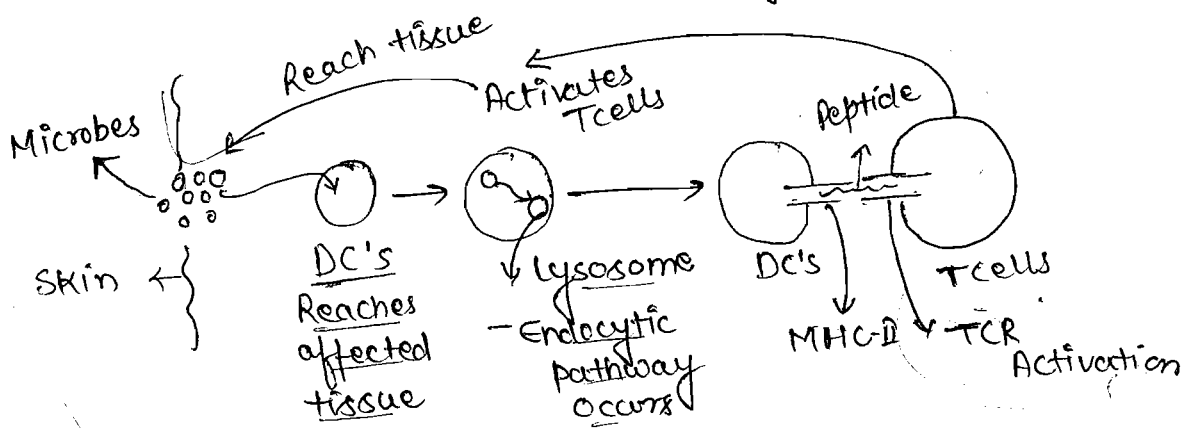 Reach tissue
Activates
Tcells
Peptide
Microbes
Skin
DC's
Reaches
affected
tissue
Lysosome
- Endocytic
pathway
occurs
DC's
Tcells
MHC-II
TCR
Activation